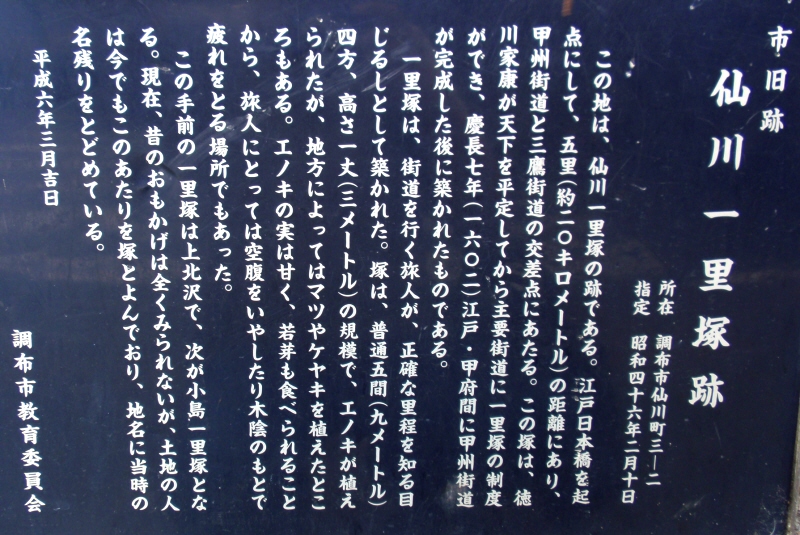 市旧跡
仙川一里塚跡
所在 調布市仙川町三―二
指定 昭和四十六年二月十日
この地は、仙川一里塚の跡である。江戸日本橋を起
点にして、五里(約二〇キロメートル)の距離にあり、
甲州街道と三鷹街道の交差点にあたる。この塚は、徳
川家康が天下を平定してから主要街道に一里塚の制度
ができ、慶長七年(一六〇二)江戸・甲府間に甲州街道
が完成した後に築かれたものである。
一里塚は、街道を行く旅人が、正確な里程を知る目
じるしとして築かれた。塚は、普通五間(九メートル)
四方、高さ一丈(三メートル)の規模で、エノキが植え
られたが、地方によってはマツやケヤキを植えたとこ
ろもある。エノキの実は甘く、若芽も食べられること
から、旅人にとっては空腹をいやしたり木陰のもとで
疲れをとる場所でもあった。
この手前の一里塚は上北沢で、次が小島一里塚とな
る。現在、昔のおもかげは全くみられないが、土地の人
は今でもこのあたりを塚とよんでおり、地名に当時の
名残りをとどめている。
平成六年三月吉日
調布市教育委員会